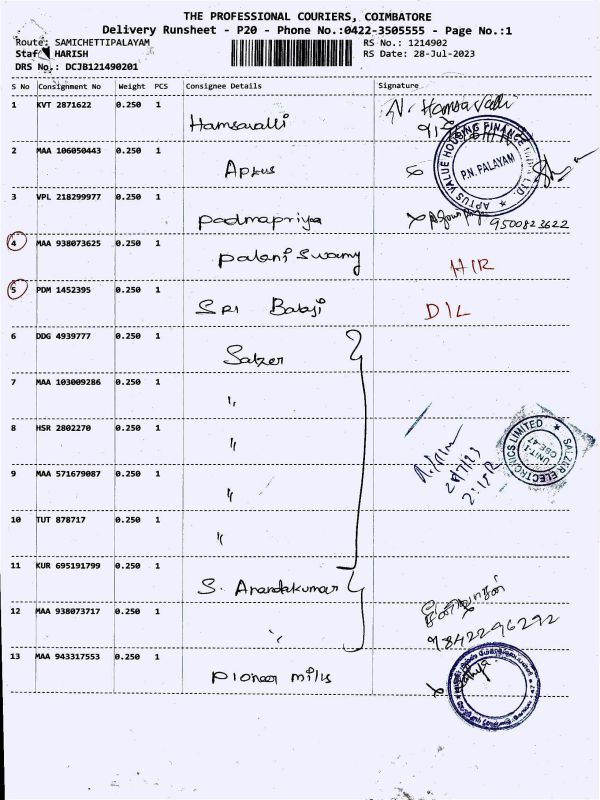 THE PROFESSIONAL COURIERS, COIMBATORE
Delivery Runsheet - P20 - Phone No.:0422-3505555 - Page No.:1
Route: SAMICHETTIPALAYAM RS No.: 1214902
Staf HARISH RS Date: 28-Jul-2023
DRS No.: DCJB121490201
S No Consignment No Weight PCS Consignee Details Signature
1 KVT 2871622 0.250 1 Hamsavalli N. Hamsavalli
2 MAA 106050443 0.250 1 Aptus
APTUS VALUE HOUSING FINANCE LTD.
P.N. PALAYAM
3 VPL 218299977 0.250 1 Padmapriya 9500823622
4 MAA 938073625 0.250 1 Palani Swamy HIR
5 PDM 1452395 0.250 1 Sri Balaji D/L
6 DDG 4939777 0.250 1 Salzer
7 MAA 103009286 0.250 1 "
8 HSR 2802270 0.250 1 "
SALZER ELECTRONICS LIMITED
UNIT-I
CBE-47
9 MAA 571679087 0.250 1 "
28/7/23
10 TUT 878717 0.250 1 "
11 KUR 695191799 0.250 1 S. Anandakumar
12 MAA 938073717 0.250 1 "
9842296292
13 MAA 943317553 0.250 1 Pioneer mills